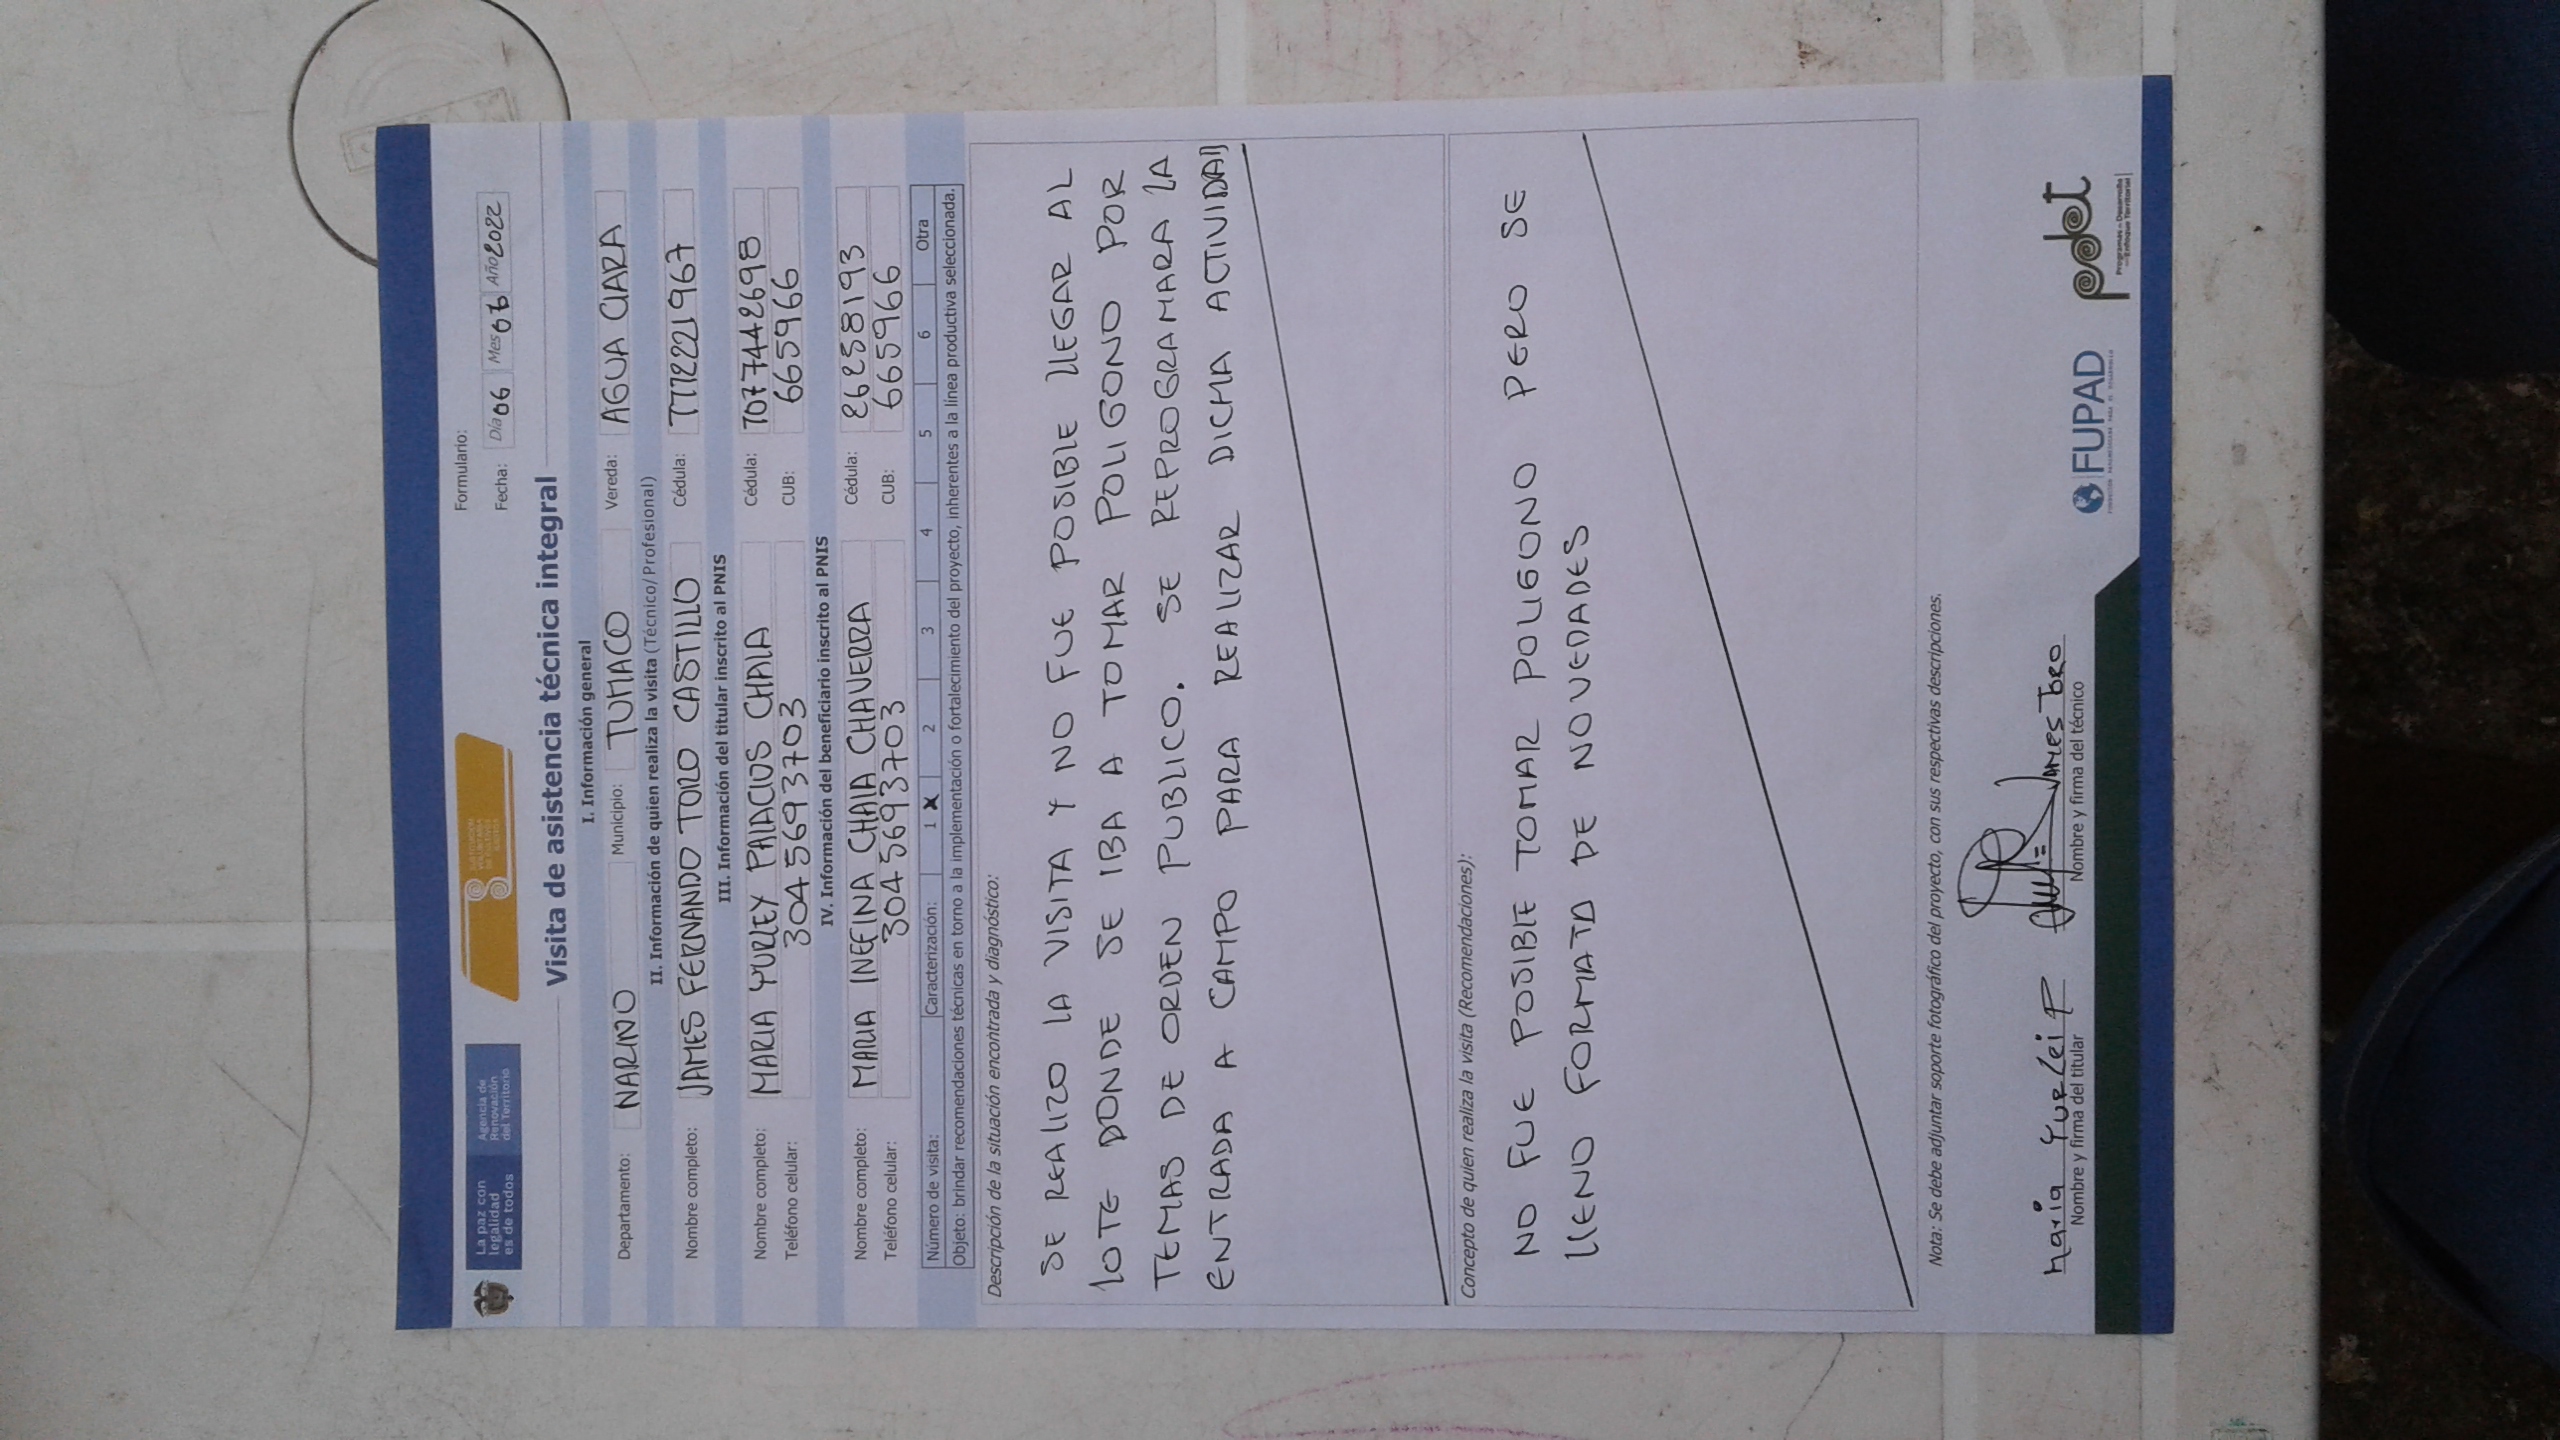 La paz con
legalidad
es de todos
Agencia de
Renovación
del Territorio
SUSTITUCIÓN
VOLUNTARIA
Formulario:
Fecha: Día 06 Mes 06 Año 2022
Visita de asistencia técnica integral
I. Información general
Departamento: NARINO Municipio: TUMACO Vereda: AGUA CLARA
II. Información de quien realiza la visita (Técnico/Profesional)
Nombre completo: JAMES FERNANDO TORO CASTILLO Cédula: 1112221967
III. Información del titular inscrito al PNIS
Nombre completo: MARIA YURLEY PALACIOS CHALA Cédula: 1077442698
Teléfono celular: 3045693703 CUB: 665966
IV. Información del beneficiario inscrito al PNIS
Nombre completo: MARIA INEFINA CHALA CHAVERRA Cédula: 26258193
Teléfono celular: 3045693703 CUB: 665966
Número de visita: Caracterización: 1 X 2 3 4 5 6 Otra
Objeto: brindar recomendaciones técnicas en torno a la implementación o fortalecimiento del proyecto, inherentes a la línea productiva seleccionada.
Descripción de la situación encontrada y diagnóstico:
SE REALIZO LA VISITA Y NO FUE POSIBLE LLEGAR AL
LOTE DONDE SE IBA A TOMAR POLIGONO POR
TEMAS DE ORDEN PUBLICO. SE REPROGRAMARA LA
ENTRADA A CAMPO PARA REALIZAR DICHA ACTIVIDAD
Concepto de quien realiza la visita (Recomendaciones):
NO FUE POSIBLE TOMAR POLIGONO PERO SE
LLENO FORMATO DE NOVEDADES
Nota: Se debe adjuntar soporte fotográfico del proyecto, con sus respectivas descripciones.
maria YurLei P James Toro
Nombre y firma del titular Nombre y firma del técnico
FUPAD
FUNDACIÓN PANAMERICANA PARA EL DESARROLLO
pdet
Programas de Desarrollo
con Enfoque Territorial